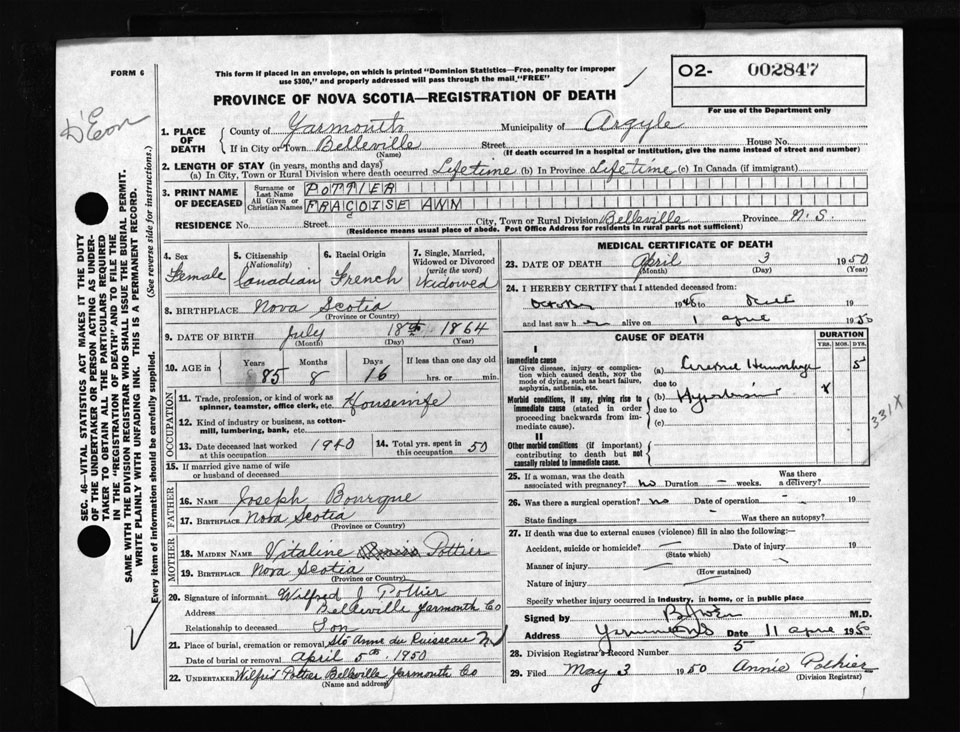 FORM 6
This form if placed in an envelope, on which is printed "Dominion Statistics—Free, penalty for improper
use $300," and properly addressed will pass through the mail, "FREE"
O2- 002847
For use of the Department only
PROVINCE OF NOVA SCOTIA—REGISTRATION OF DEATH
D'Eon
1. PLACE OF DEATH
County of Yarmouth Municipality of Argyle
If in City or Town Belleville Street House No.
(Name) (If death occurred in a hospital or institution, give the name instead of street and number)
2. LENGTH OF STAY (in years, months and days)
(a) In City, Town or Rural Division where death occurred Lifetime (b) In Province Lifetime (c) In Canada (if immigrant)
3. PRINT NAME OF DECEASED
Surname or Last Name POTTIER
All Given or Christian Names FRACOISE ANN
RESIDENCE No. Street City, Town or Rural Division Belleville Province N.S.
(Residence means usual place of abode. Post Office Address for residents in rural parts not sufficient)
4. Sex
Female
5. Citizenship
(Nationality)
Canadian
6. Racial Origin
French
7. Single, Married, Widowed or Divorced
(write the word)
Widowed
8. BIRTHPLACE Nova Scotia
(Province or Country)
9. DATE OF BIRTH July 18th 1864
(Month) (Day) (Year)
10. AGE in Years Months Days If less than one day old
85 8 16 hrs. or min.
OCCUPATION
11. Trade, profession, or kind of work as
spinner, teamster, office clerk, etc. Housewife
12. Kind of industry or business, as cotton-
mill, lumbering, bank, etc.
13. Date deceased last worked
at this occupation 1940
14. Total yrs. spent in
this occupation 50
15. If married give name of wife
or husband of deceased
FATHER
16. NAME Joseph Bourque
17. BIRTHPLACE Nova Scotia
(Province or Country)
MOTHER
18. MAIDEN NAME Vitaline Pottier
19. BIRTHPLACE Nova Scotia
(Province or Country)
20. Signature of informant Wilfred J Pottier
Address Belleville Yarmouth Co
Relationship to deceased Son
21. Place of burial, cremation or removal Ste Anne du Ruisseau NS
Date of burial or removal April 5th. 1950
22. UNDERTAKER Wilfred Pottier Belleville Yarmouth Co
(Name and address)
MEDICAL CERTIFICATE OF DEATH
23. DATE OF DEATH April 3 1950
(Month) (Day) (Year)
24. I HEREBY CERTIFY that I attended deceased from:
October 1948 to death 19
and last saw her alive on 1 April 1950
CAUSE OF DEATH
DURATION
YRS. MOS. DYS.
I
Immediate cause
Give disease, injury or complica-
tion which caused death, NOT the
mode of dying, such as heart failure,
asphyxia, asthenia, etc.
(a) Cerebral Hemorrhage 5
due to
Morbid conditions, if any, giving rise to
immediate cause (stated in order
proceeding backwards from im-
mediate cause).
(b) Hypertension
due to
(c)
II
Other morbid conditions (if important)
contributing to death but not
causally related to immediate cause.
331X
25. If a woman, was the death
associated with pregnancy? no Duration — weeks. Was there
a delivery?
26. Was there a surgical operation? no Date of operation — 19
State findings — Was there an autopsy?
27. If death was due to external causes (violence) fill in also the following:—
Accident, suicide or homicide? — Date of injury 19
(State which)
Manner of injury
(How sustained)
Nature of injury
Specify whether injury occurred in industry, in home, or in public place
Signed by M.D.
Address Yarmouth NS Date 11 April 1950
28. Division Registrar's Record Number 5
29. Filed May 3 1950 Annie Pothier
(Division Registrar)
SEC. 46—VITAL STATISTICS ACT MAKES IT THE DUTY
OF THE UNDERTAKER OR PERSON ACTING AS UNDER-
TAKER TO OBTAIN ALL THE PARTICULARS REQUIRED
IN THE "REGISTRATION OF DEATH" AND TO FILE THE
SAME WITH THE DIVISION REGISTRAR WHO SHALL ISSUE THE BURIAL PERMIT.
WRITE PLAINLY WITH UNFADING INK. THIS IS A PERMANENT RECORD.
Every item of information should be carefully supplied. (See reverse side for instructions.)